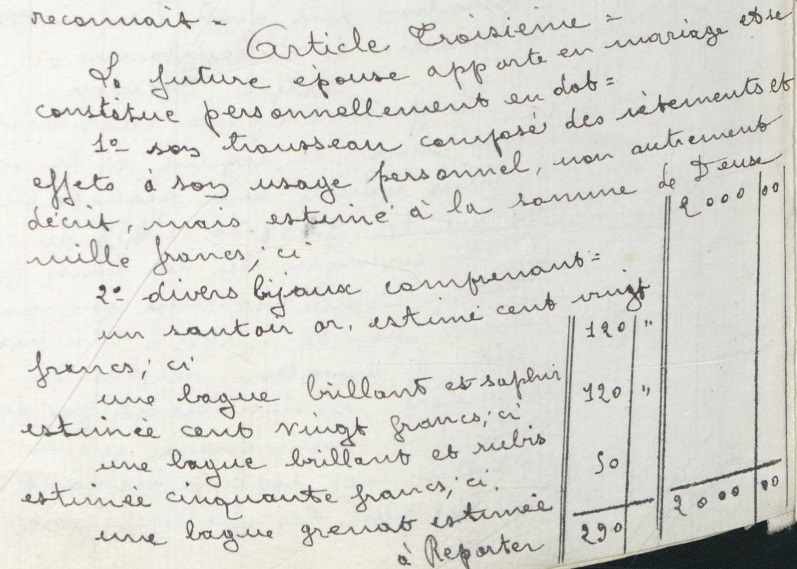 reconnait =
Article Troisième =
La future épouse apporte en mariage et se
constitue personnellement en dot =
1º son trousseau composé des vêtements et
effets à son usage personnel, non autrement
décrit, mais estimé à la somme de Deux
mille francs, ci 2000 00
2º divers bijoux comprenant =
un sautoir or, estimé cent vingt
francs, ci 120 "
une bague brillant et saphir
estimée cent vingt francs, ci 120 "
une bague brillant et rubis
estimée cinquante francs, ci. 50
une bague grenat estimée
à Reporter 290 2000 00